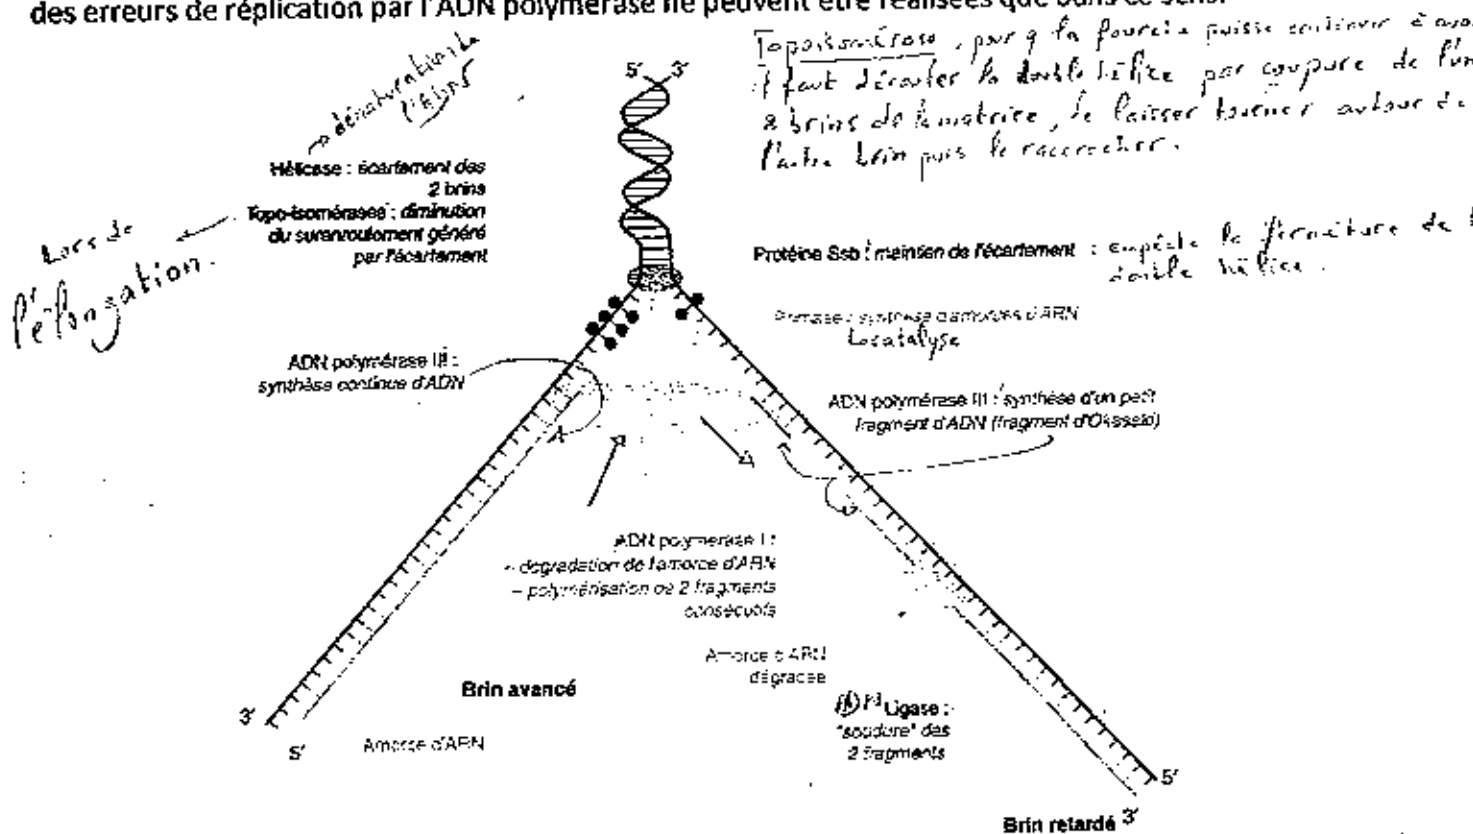 des erreurs de réplication par l'ADN polymérase ne peuvent être réalisées que dans ce sens.
Topoisomérase, pour q la fourche puisse continuer à
il faut dérouler la double hélice par coupure de l'un
2 brins de la matrice, le laisser tourner autour de
l'autre brin puis le raccrocher.
→ dénaturation de
l'ADN
5' 3'
Hélicase : écartement des
2 brins
Topo-isomérases : diminution
du surenroulement généré
par l'écartement
Lors de
l'élongation.
Protéine Ssb : maintien de l'écartement : empêche la fermeture de
double hélice.
Primase : synthèse d'amorces d'ARN
catalyse
ADN polymérase III :
synthèse continue d'ADN
ADN polymérase III : synthèse d'un petit
fragment d'ADN (fragment d'Okasaki)
ADN polymerase I :
- degradation de l'amorce d'ARN
– polymérisation de 2 fragments
consécutifs
Amorce d'ARN
dégradée
Brin avancé
Ligase :
"soudure" des
2 fragments
3'
5'
Amorce d'ARN
5'
3'
Brin retardé